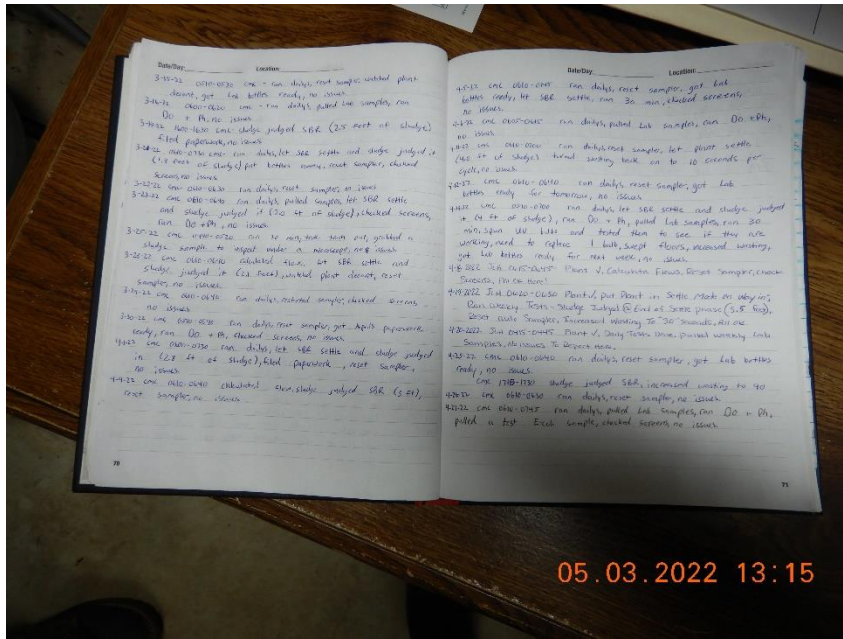 Date/Day: Location:
3-15-22 0710-0730 cmc - ran dailys, reset sampler, watched plant
decant, got Lab bottles ready, no issues.
3-16-22 0600-0620 cmc - ran dailys, pulled Lab samples, ran
DO + Ph, no issues
1600-1630 cmc- sludge judged SBR (2.5 feet of sludge)
filled paperwork, no issues
cmc ran dailys, let SBR settle and sludge judged it
feet of sludge) put bottles reset sampler, checked
screens, no issues
3-22-22 cmc ran dailys, reset sampler, no issues
3-23-22 cmc ran dailys, pulled samples, let SBR settle
and sludge judged it (2.0 ft of sludge), checked screens,
ran DO + Ph, no issues
3-25-22 cmc ran 30 min, took trash out, grabbed a
sludge sample to inspect under a microscope, no issues
cmc 0610-0640 calculated flow, let SBR settle and
sludge judged it feet), watched plant decant, reset
sampler, no issues
cmc ran dailys, sampler, checked screens,
no issues
cmc ran dailys, reset sampler, got paperwork
ready, ran DO + Ph, checked screens, no issues
cmc ran dailys, let SBR settle and sludge judged
it (2.8 ft of sludge), filed paperwork, reset sampler,
no issues
4-4-22 cmc 0610-0640 calculated flow, sludge judged SBR (3 ft),
reset sampler, no issues
70
Date/Day: Location:
4-5-22 cmc ran dailys, reset sampler, got Lab
bottles ready, let SBR settle, ran 30 min, checked screens,
no issues
cmc ran dailys, pulled Lab samples, ran DO + Ph,
no issues
cmc ran dailys, reset sampler, let plant settle
ft of sludge) turned wasting back on to 10 seconds per
cycle, no issues
cmc 0610-0640 ran dailys, reset sampler, got Lab
bottles ready for tomorrow, no issues
cmc ran dailys, let SBR settle and sludge judged
it ft of sludge), ran DO + Ph, pulled Lab samples, ran 30
min, spun UV bulbs and tested them to see if they are
working, need to replace 1 bulb, swept floors, increased wasting,
got Lab bottles ready for next week, no issues
0415-0445 Plant V, Calculate Flows, Reset Sampler, check
Screens,
4-19-2022 0420-0630 Plant V, put Plant in Settle Mode on way in,
Ran weekly Tests - Sludge Judged @ End of Settle phase (3.5 feet),
Reset Sampler, Increased Wasting To "20" seconds,
4-20-2022 0415-0445 Plant V, Daily Tests Done, pulled weekly Lab
Samples, No issues To Report Here.
cmc 0610-0640 ran dailys, reset sampler, got Lab bottles
ready, no issues
cmc 1710-1730 sludge judged SBR, increased wasting to 40
cmc 0610-0630 ran dailys, reset sampler, no issues
cmc ran dailys, pulled Lab samples, ran DO + Ph,
pulled a test Ecoli sample, checked screens, no issues
71
05.03.2022 13:15